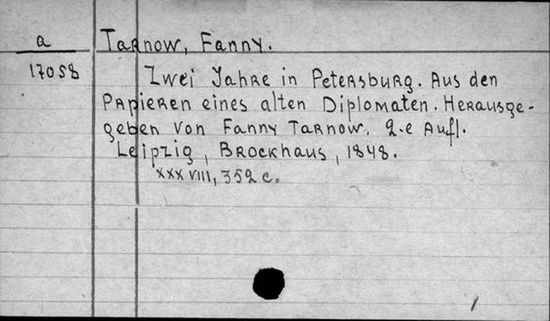 a
17058
Tarnow, Fanny.
Zwei Jahre in Petersburg. Aus den
Papieren eines alten Diplomaten. Herausge-
geben von Fanny Tarnow. 2-e Aufl.
Leipzig, Brockhaus, 1848.
XXXVIII, 352 c.